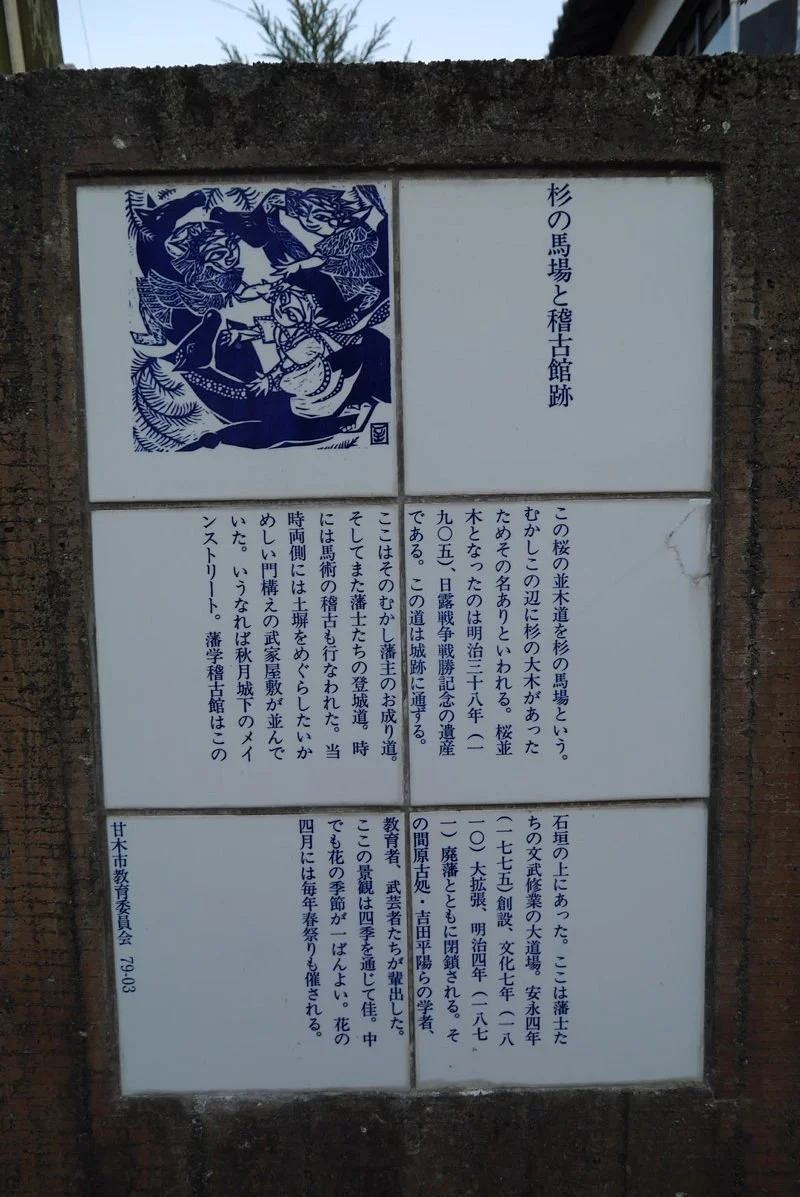 杉の馬場と稽古館跡
この桜の並木道を杉の馬場という。
むかしこの辺に杉の大木があった
ためその名ありといわれる。桜並
木となったのは明治三十八年（一
九〇五）、日露戦争戦勝記念の遺産
である。この道は城跡に通ずる。
ここはそのむかし藩主のお成り道。
そしてまた藩士たちの登城道。時
には馬術の稽古も行なわれた。当
時両側には土塀をめぐらしたいか
めしい門構えの武家屋敷が並んで
いた。いうなれば秋月城下のメイ
ンストリート。藩学稽古館はこの
石垣の上にあった。ここは藩士た
ちの文武修業の大道場。安永四年
（一七七五）創設、文化七年（一八
一〇）大拡張、明治四年（一八七
一）廃藩とともに閉鎖される。そ
の間原古処・吉田平陽らの学者、
教育者、武芸者たちが輩出した。
ここの景観は四季を通じて佳。中
でも花の季節が一ばんよい。花の
四月には毎年春祭りも催される。
甘木市教育委員会 79-03